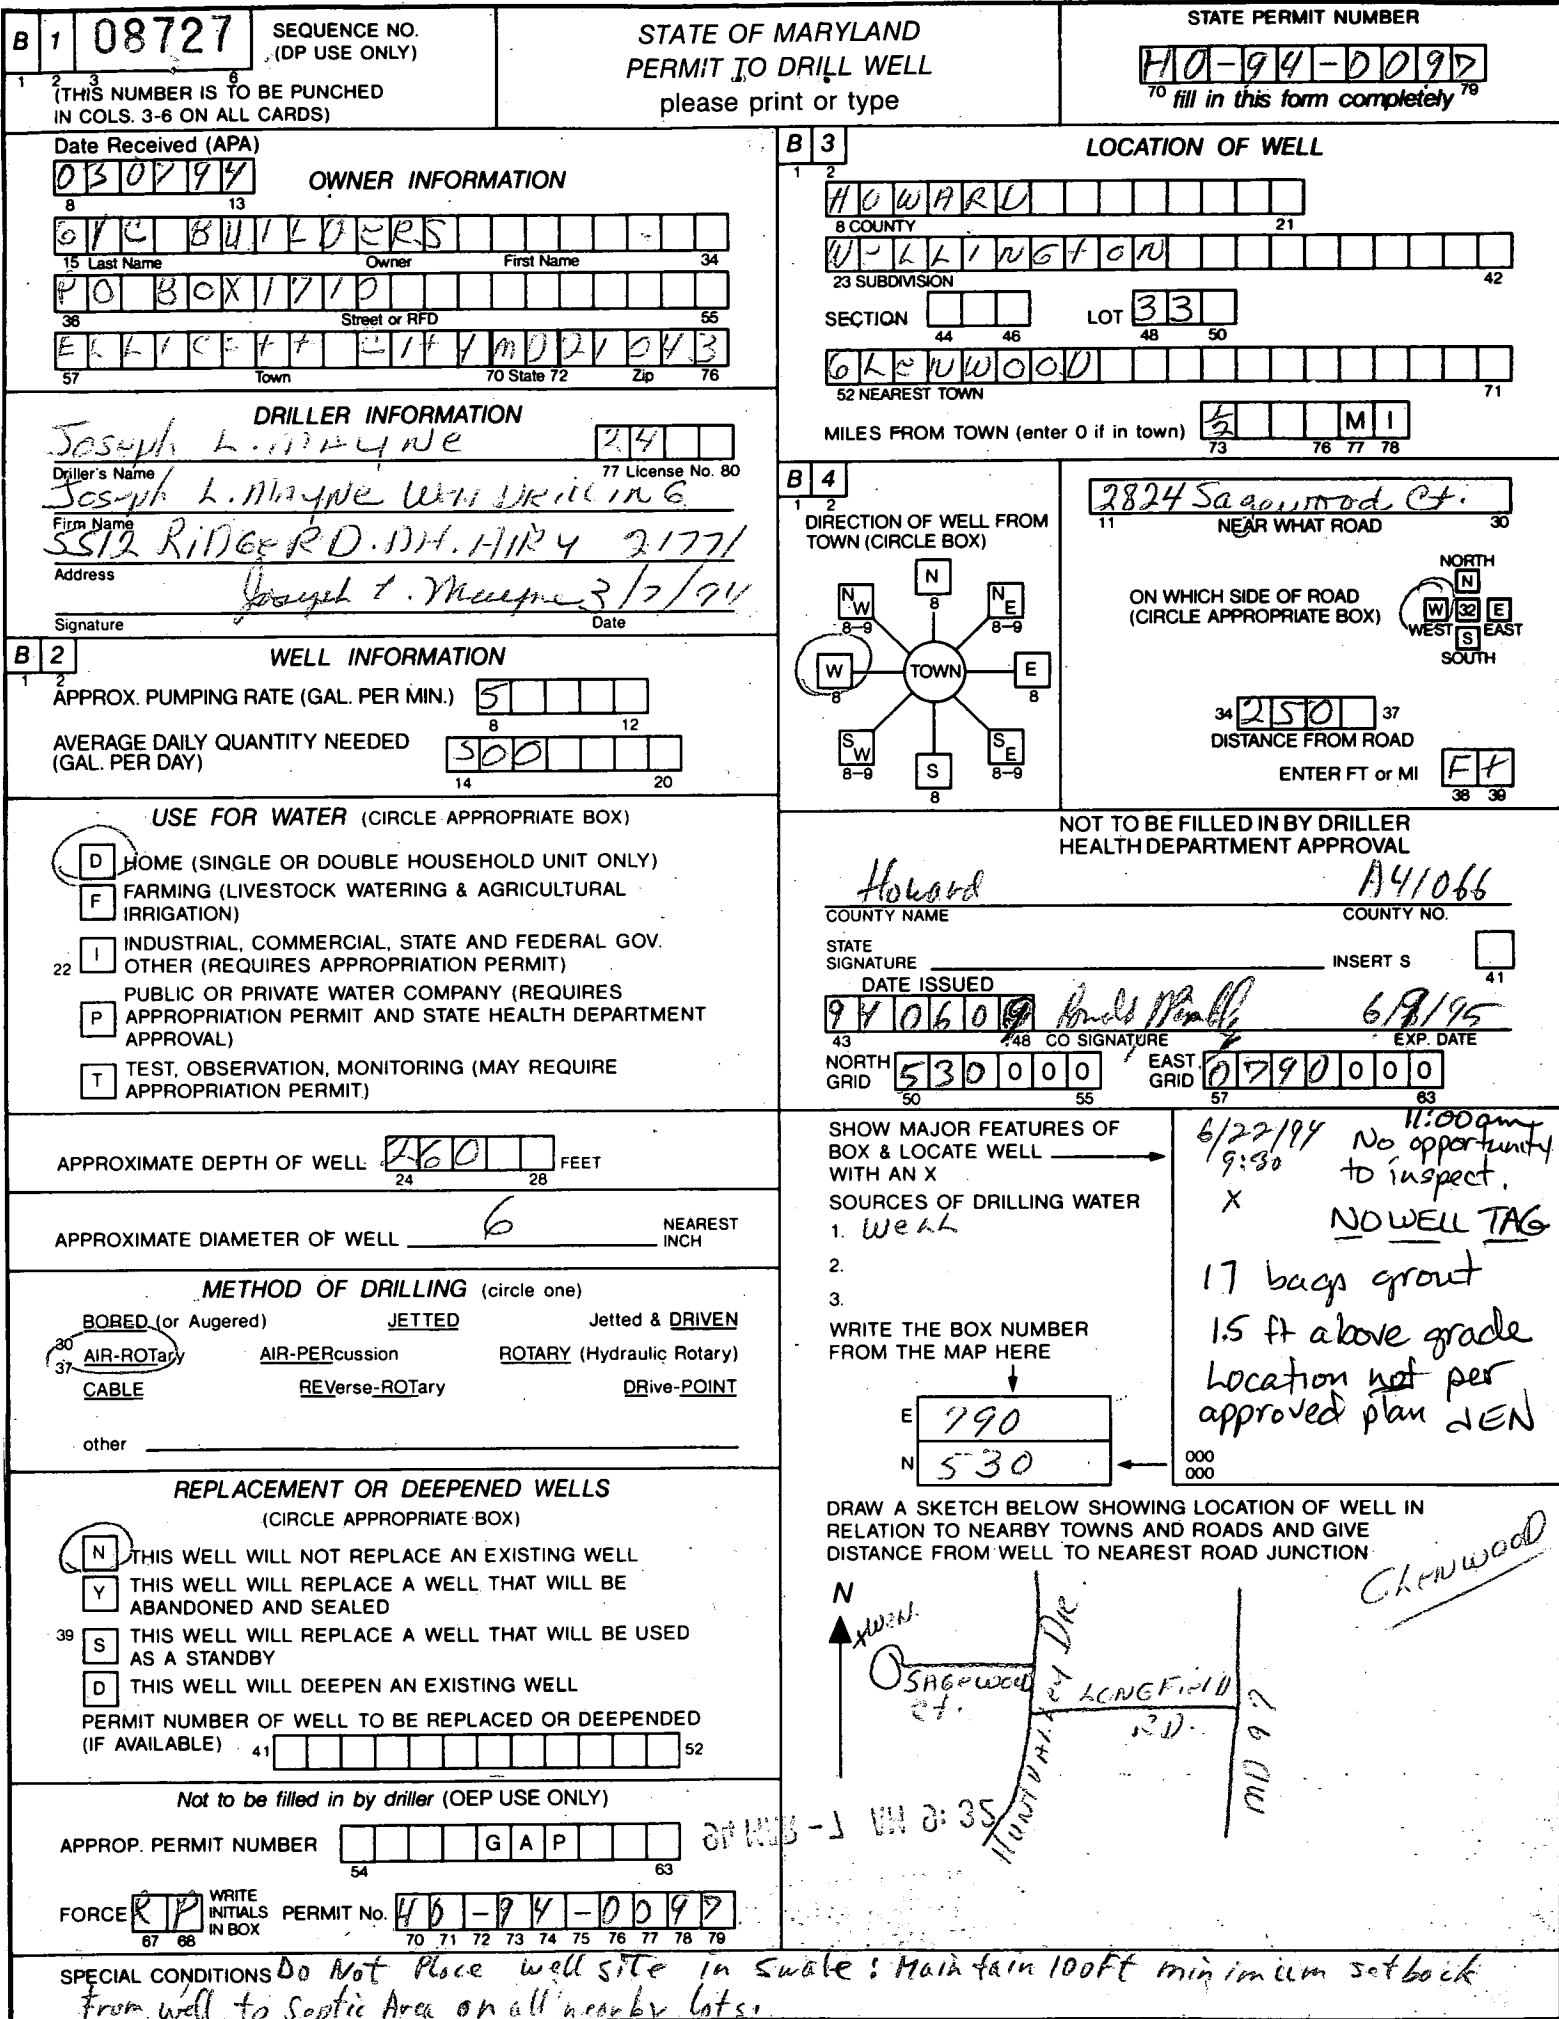 B 1 08727
SEQUENCE NO.
(DP USE ONLY)
1 2 3 6
(THIS NUMBER IS TO BE PUNCHED
IN COLS. 3-6 ON ALL CARDS)
STATE OF MARYLAND
PERMIT TO DRILL WELL
please print or type
STATE PERMIT NUMBER
HO-94-0097
70 fill in this form completely 79
Date Received (APA)
030794
8 13
OWNER INFORMATION
GYC BUILDERS
15 Last Name Owner First Name 34
PO BOX 1710
36 Street or RFD 55
ELLICOTT CITY MD 21043
57 Town 70 State 72 Zip 76
DRILLER INFORMATION
Joseph L. MAYNE 24
Driller's Name 77 License No. 80
Joseph L. MAYNE Well DRILLING
Firm Name
5512 RiDGE RD. Mt. AIRY 21771
Address
Joseph L. Mayne 3/7/94
Signature Date
B 2
1 2
WELL INFORMATION
APPROX. PUMPING RATE (GAL. PER MIN.) 5
8 12
AVERAGE DAILY QUANTITY NEEDED
(GAL. PER DAY) 500
14 20
USE FOR WATER (CIRCLE APPROPRIATE BOX)
D HOME (SINGLE OR DOUBLE HOUSEHOLD UNIT ONLY)
F FARMING (LIVESTOCK WATERING & AGRICULTURAL
IRRIGATION)
22 I INDUSTRIAL, COMMERCIAL, STATE AND FEDERAL GOV.
OTHER (REQUIRES APPROPRIATION PERMIT)
P PUBLIC OR PRIVATE WATER COMPANY (REQUIRES
APPROPRIATION PERMIT AND STATE HEALTH DEPARTMENT
APPROVAL)
T TEST, OBSERVATION, MONITORING (MAY REQUIRE
APPROPRIATION PERMIT)
APPROXIMATE DEPTH OF WELL 260 FEET
24 28
APPROXIMATE DIAMETER OF WELL 6 NEAREST
INCH
METHOD OF DRILLING (circle one)
BORED (or Augered) JETTED Jetted & DRIVEN
30 AIR-ROTary AIR-PERcussion ROTARY (Hydraulic Rotary)
37
CABLE REVerse-ROTary DRive-POINT
other
REPLACEMENT OR DEEPENED WELLS
(CIRCLE APPROPRIATE BOX)
N THIS WELL WILL NOT REPLACE AN EXISTING WELL
Y THIS WELL WILL REPLACE A WELL THAT WILL BE
ABANDONED AND SEALED
39 S THIS WELL WILL REPLACE A WELL THAT WILL BE USED
AS A STANDBY
D THIS WELL WILL DEEPEN AN EXISTING WELL
PERMIT NUMBER OF WELL TO BE REPLACED OR DEEPENDED
(IF AVAILABLE) 41 52
Not to be filled in by driller (OEP USE ONLY)
APPROP. PERMIT NUMBER GAP
54 63
FORCE RP WRITE
INITIALS
IN BOX PERMIT No. HO-94-0097
67 68 70 71 72 73 74 75 76 77 78 79
B 3
1 2
LOCATION OF WELL
HOWARD
8 COUNTY 21
WELLINGTON
23 SUBDIVISION 42
SECTION LOT 33
44 46 48 50
GLENWOOD
52 NEAREST TOWN 71
MILES FROM TOWN (enter 0 if in town) 1/2 MI
73 76 77 78
B 4
1 2
DIRECTION OF WELL FROM
TOWN (CIRCLE BOX)
N
8
NW NE
8-9 8-9
W TOWN E
8 8
SW SE
8-9 8-9
S
8
2824 Sagewood Ct.
11 NEAR WHAT ROAD 30
ON WHICH SIDE OF ROAD
(CIRCLE APPROPRIATE BOX)
NORTH
N
W 32 E
WEST S EAST
SOUTH
34 250 37
DISTANCE FROM ROAD
ENTER FT or MI Ft
38 39
NOT TO BE FILLED IN BY DRILLER
HEALTH DEPARTMENT APPROVAL
Howard A41066
COUNTY NAME COUNTY NO.
STATE
SIGNATURE INSERT S
41
DATE ISSUED
940609 6/9/95
43 48 CO SIGNATURE EXP. DATE
NORTH
GRID 530000 EAST
GRID 0790000
50 55 57 63
SHOW MAJOR FEATURES OF
BOX & LOCATE WELL
WITH AN X
SOURCES OF DRILLING WATER
1. WELL
2.
3.
WRITE THE BOX NUMBER
FROM THE MAP HERE
E 790
N 530
000
000
6/22/94 11:00am
9:30 No opportunity
to inspect.
X
NO WELL TAG
17 bags grout
1.5 ft above grade
Location not per
approved plan JEN
DRAW A SKETCH BELOW SHOWING LOCATION OF WELL IN
RELATION TO NEARBY TOWNS AND ROADS AND GIVE
DISTANCE FROM WELL TO NEAREST ROAD JUNCTION
GLENWOOD
N
SAGEWOOD
Ct.
HUNT VALLEY DR
LONGFIELD
RD.
MD 97
94 MAR -7 AM 9:32
SPECIAL CONDITIONS Do Not Place well site in Swale: Maintain 100Ft minimum setback
from well to Septic Area on all nearby lots.